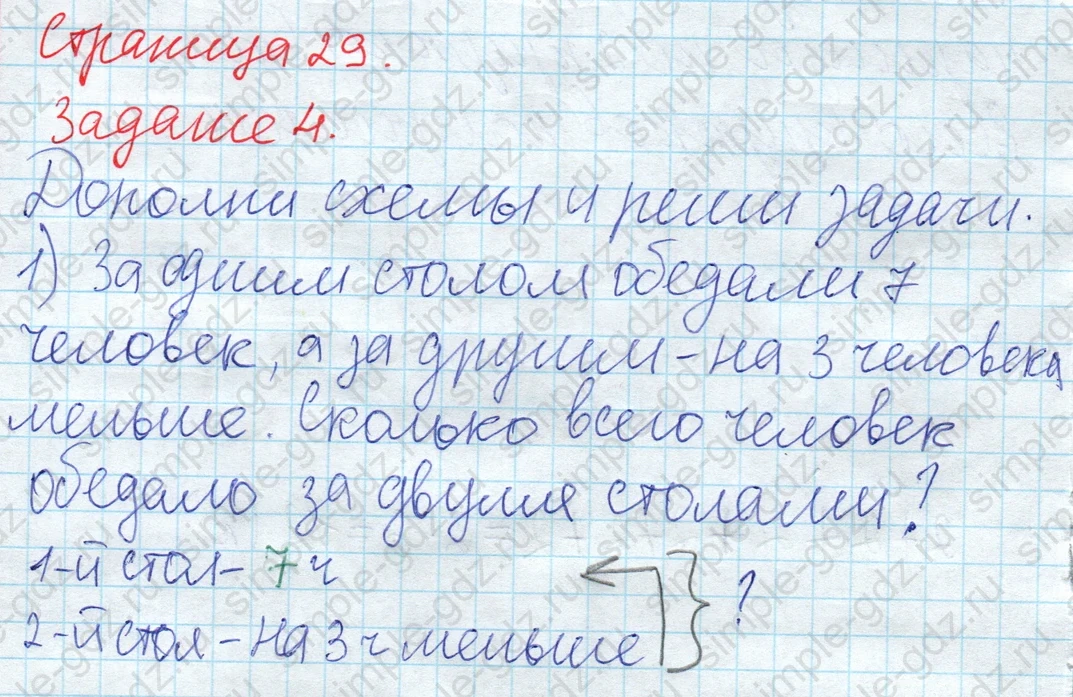 Страница 29.
Задание 4.
Дополни схемы и реши задачи.
1) За одним столом обедали 7
человек, а за другим - на 3 человека
меньше. Сколько всего человек
обедало за двумя столами?
1-й стол - 7 ч
2-й стол - на 3 ч меньше
?
simple-gdz.ru